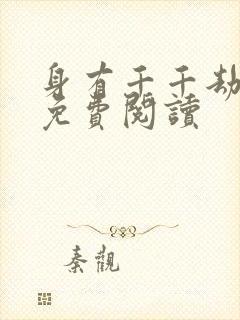 身有千千劫
免費閱讀
秦觀